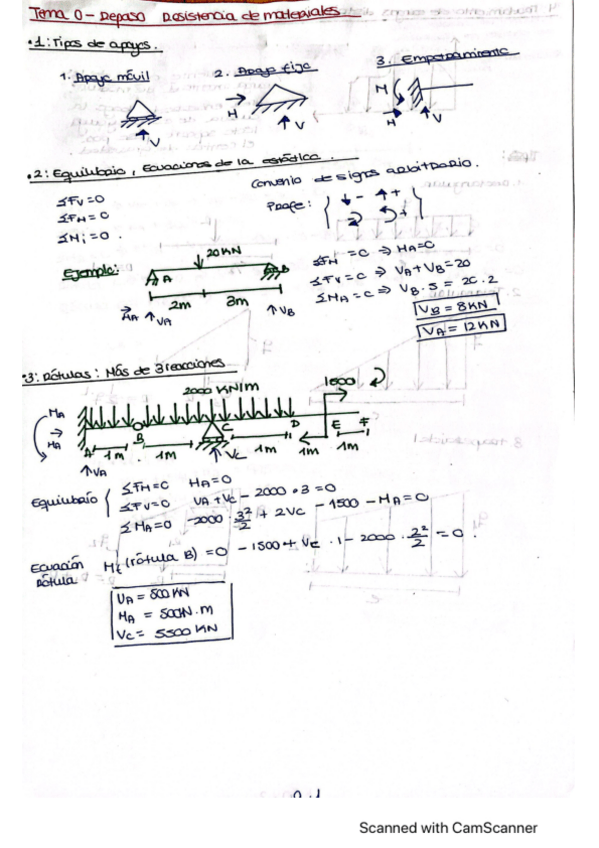 Tema 0 - Repaso Resistencia de materiales
• 1: Tipos de apoyos.
1. Apoyo móvil
2. Apoyo fijo
3. Empotramiento
V
H
V
M
H
V
• 2: Equilibrio, Ecuaciones de la estática.
Convenio de signos arbitrario.
ΣFV=0
ΣFH=0
ΣMi=0.
Profe: { ↓- ↑+
Ejemplo:
20KN
A
B
2m
3m
HA
VA
VB
ΣFH = 0 ⇒ HA=0
ΣFV = 0 ⇒ VA+VB=20
ΣMA = 0 ⇒ VB·5 = 20·2
VB = 8KN
VA = 12KN
• 3: Rótulas: Más de 3 reacciones
2000 KN/m
1500
MA
HA
A
B
C
D
E
F
1m
1m
1m
1m
1m
VA
VC
Equilibrio {
ΣFH=0 HA=0
ΣFV=0 VA+VC - 2000·3=0
ΣMA=0 -2000·3²/2 + 2VC - 1500 - MA=0
Ecuación Rótula
Mt (rótula B) = 0 - 1500 + VC · 1 - 2000 · 2²/2 = 0.
VA = 500 KN
MA = 500N·m
VC = 5500 KN
Scanned with CamScanner